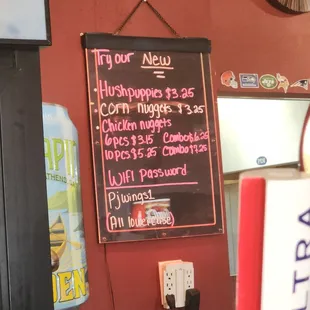 Try our New
Hushpuppies $3.25
Corn nuggets $3.25
Chicken nuggets
6pcs $3.15 Combo $6.25
10pcs $5.25 Combo $7.25
WIFI Password
Pjwings1
(All lowercase)
LTRA